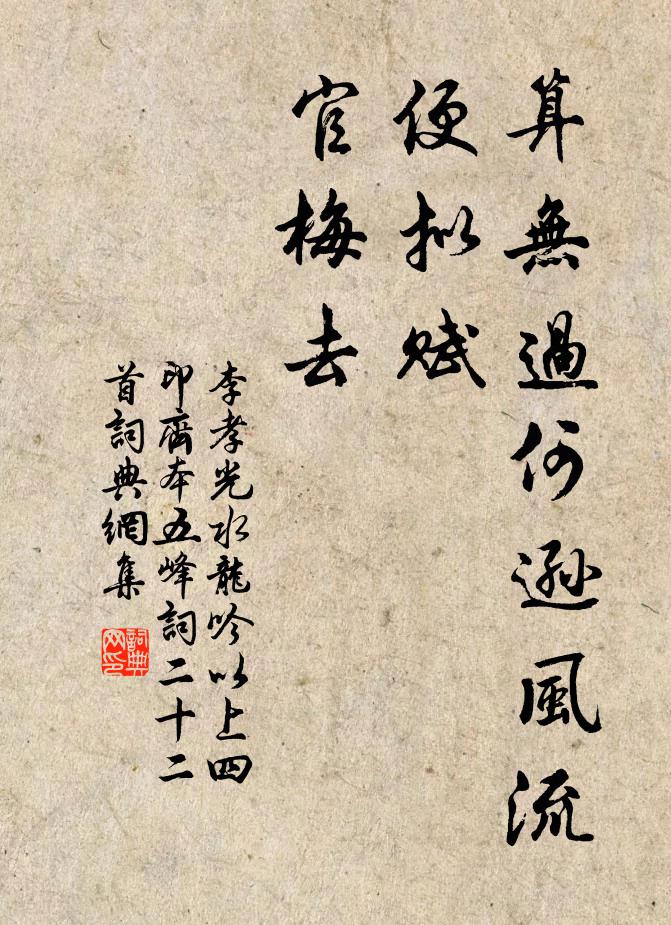 算無過何遜風流
便拟賦
官梅去
李孝光水龍吟以上四
印齋本五峰詞二十二
首詞典網集
詞典网印